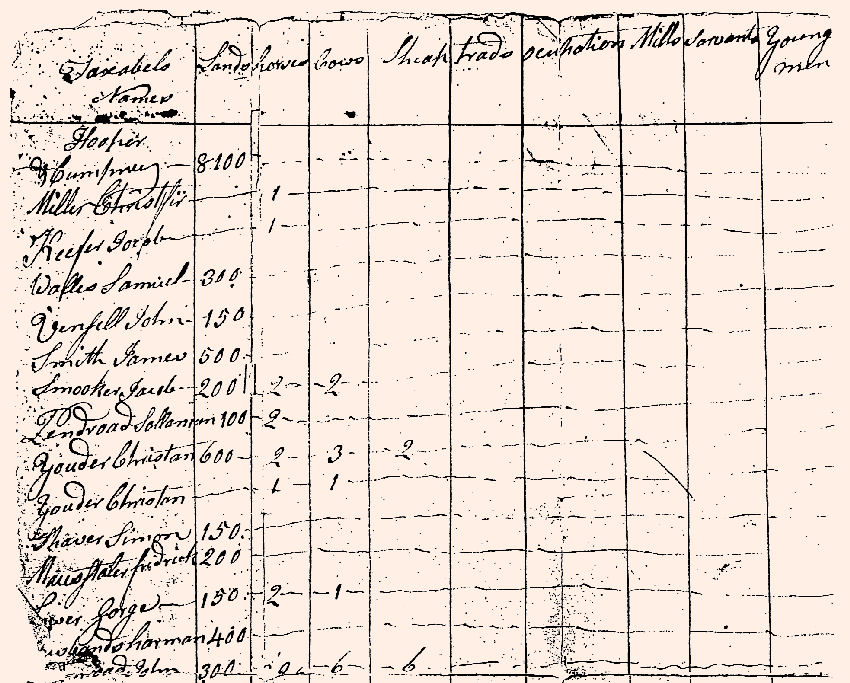 Taxabels Names Lands horses Cows Sheap trads ocupation Mills Sarvants Young men
Hooper
Humphrey 8100
Miller Christ 1
Keefer Jacob 1
Wallis Samuel 300
John 150
Smith James 500
Smooker Jacob 200 2 2
Lendroad Solloman 100 2
Youder Christan 600 2 3 2
Youder Christan 1 1
Shaver Simon 150
fridrick 200
Gorge 150 2 1
harman 400
John 300 2 6 6